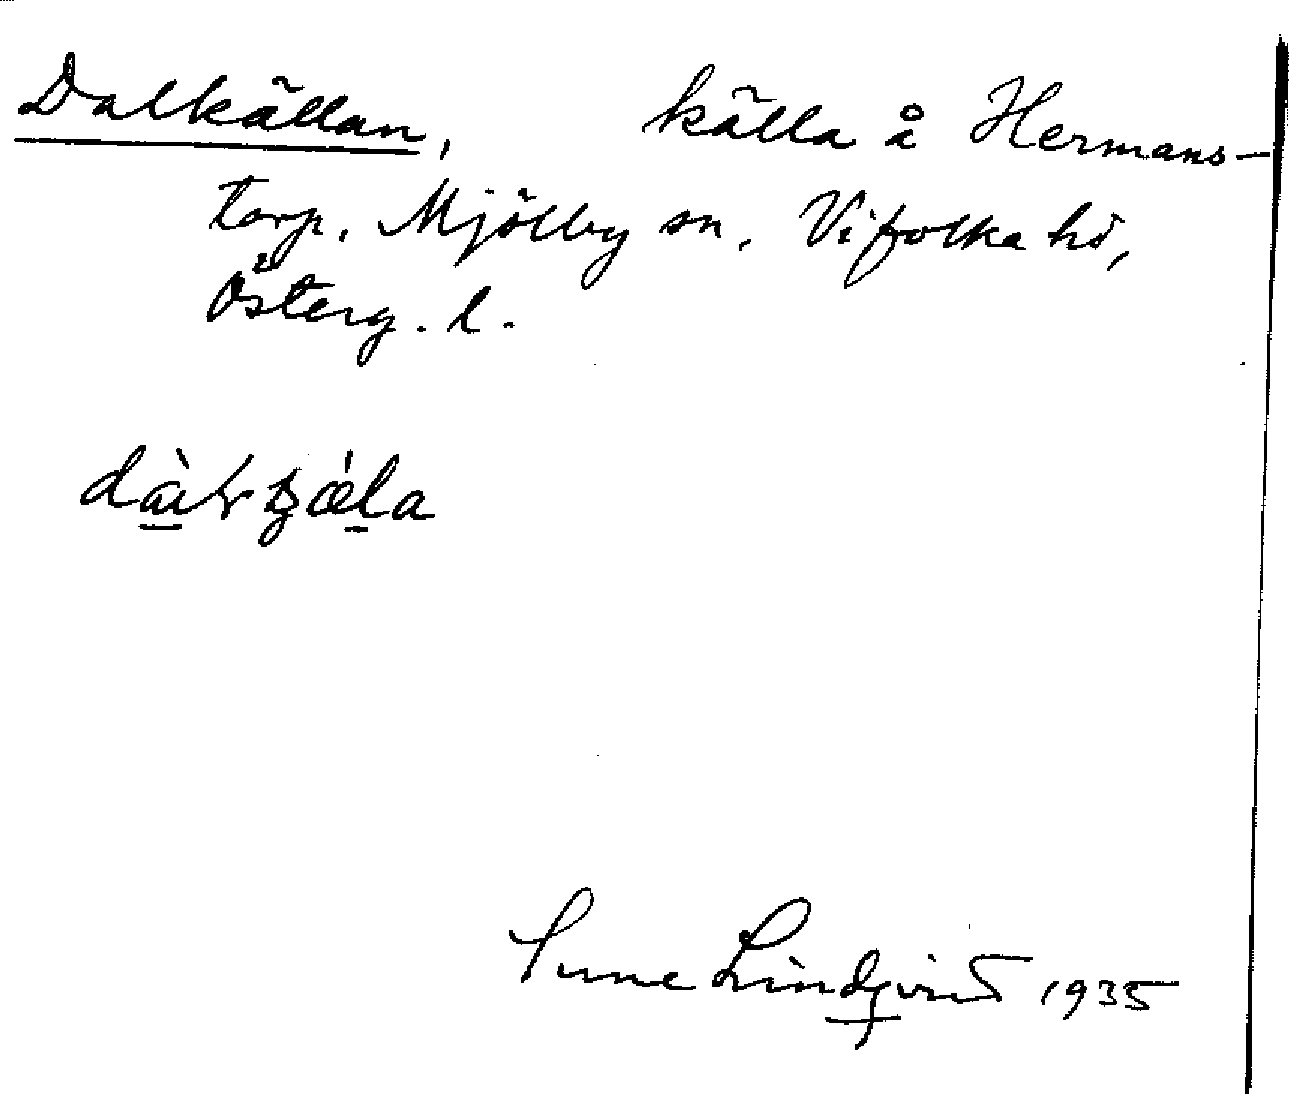 Dalkällan, källa å Hermans-
torp, Mjölby sn, Vifolka hd,
Österg. l.
Sune Lindqvist 1935